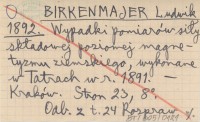 BIRKENMAJER Ludwik
1892. Wypadki pomiarów siły
składowej poziomej magne-
tyzmu ziemskiego, wykonane
w Tatrach w r. 1891. —
Kraków. Stron 23, 8°.
Odb. z t. 24 Rozpraw